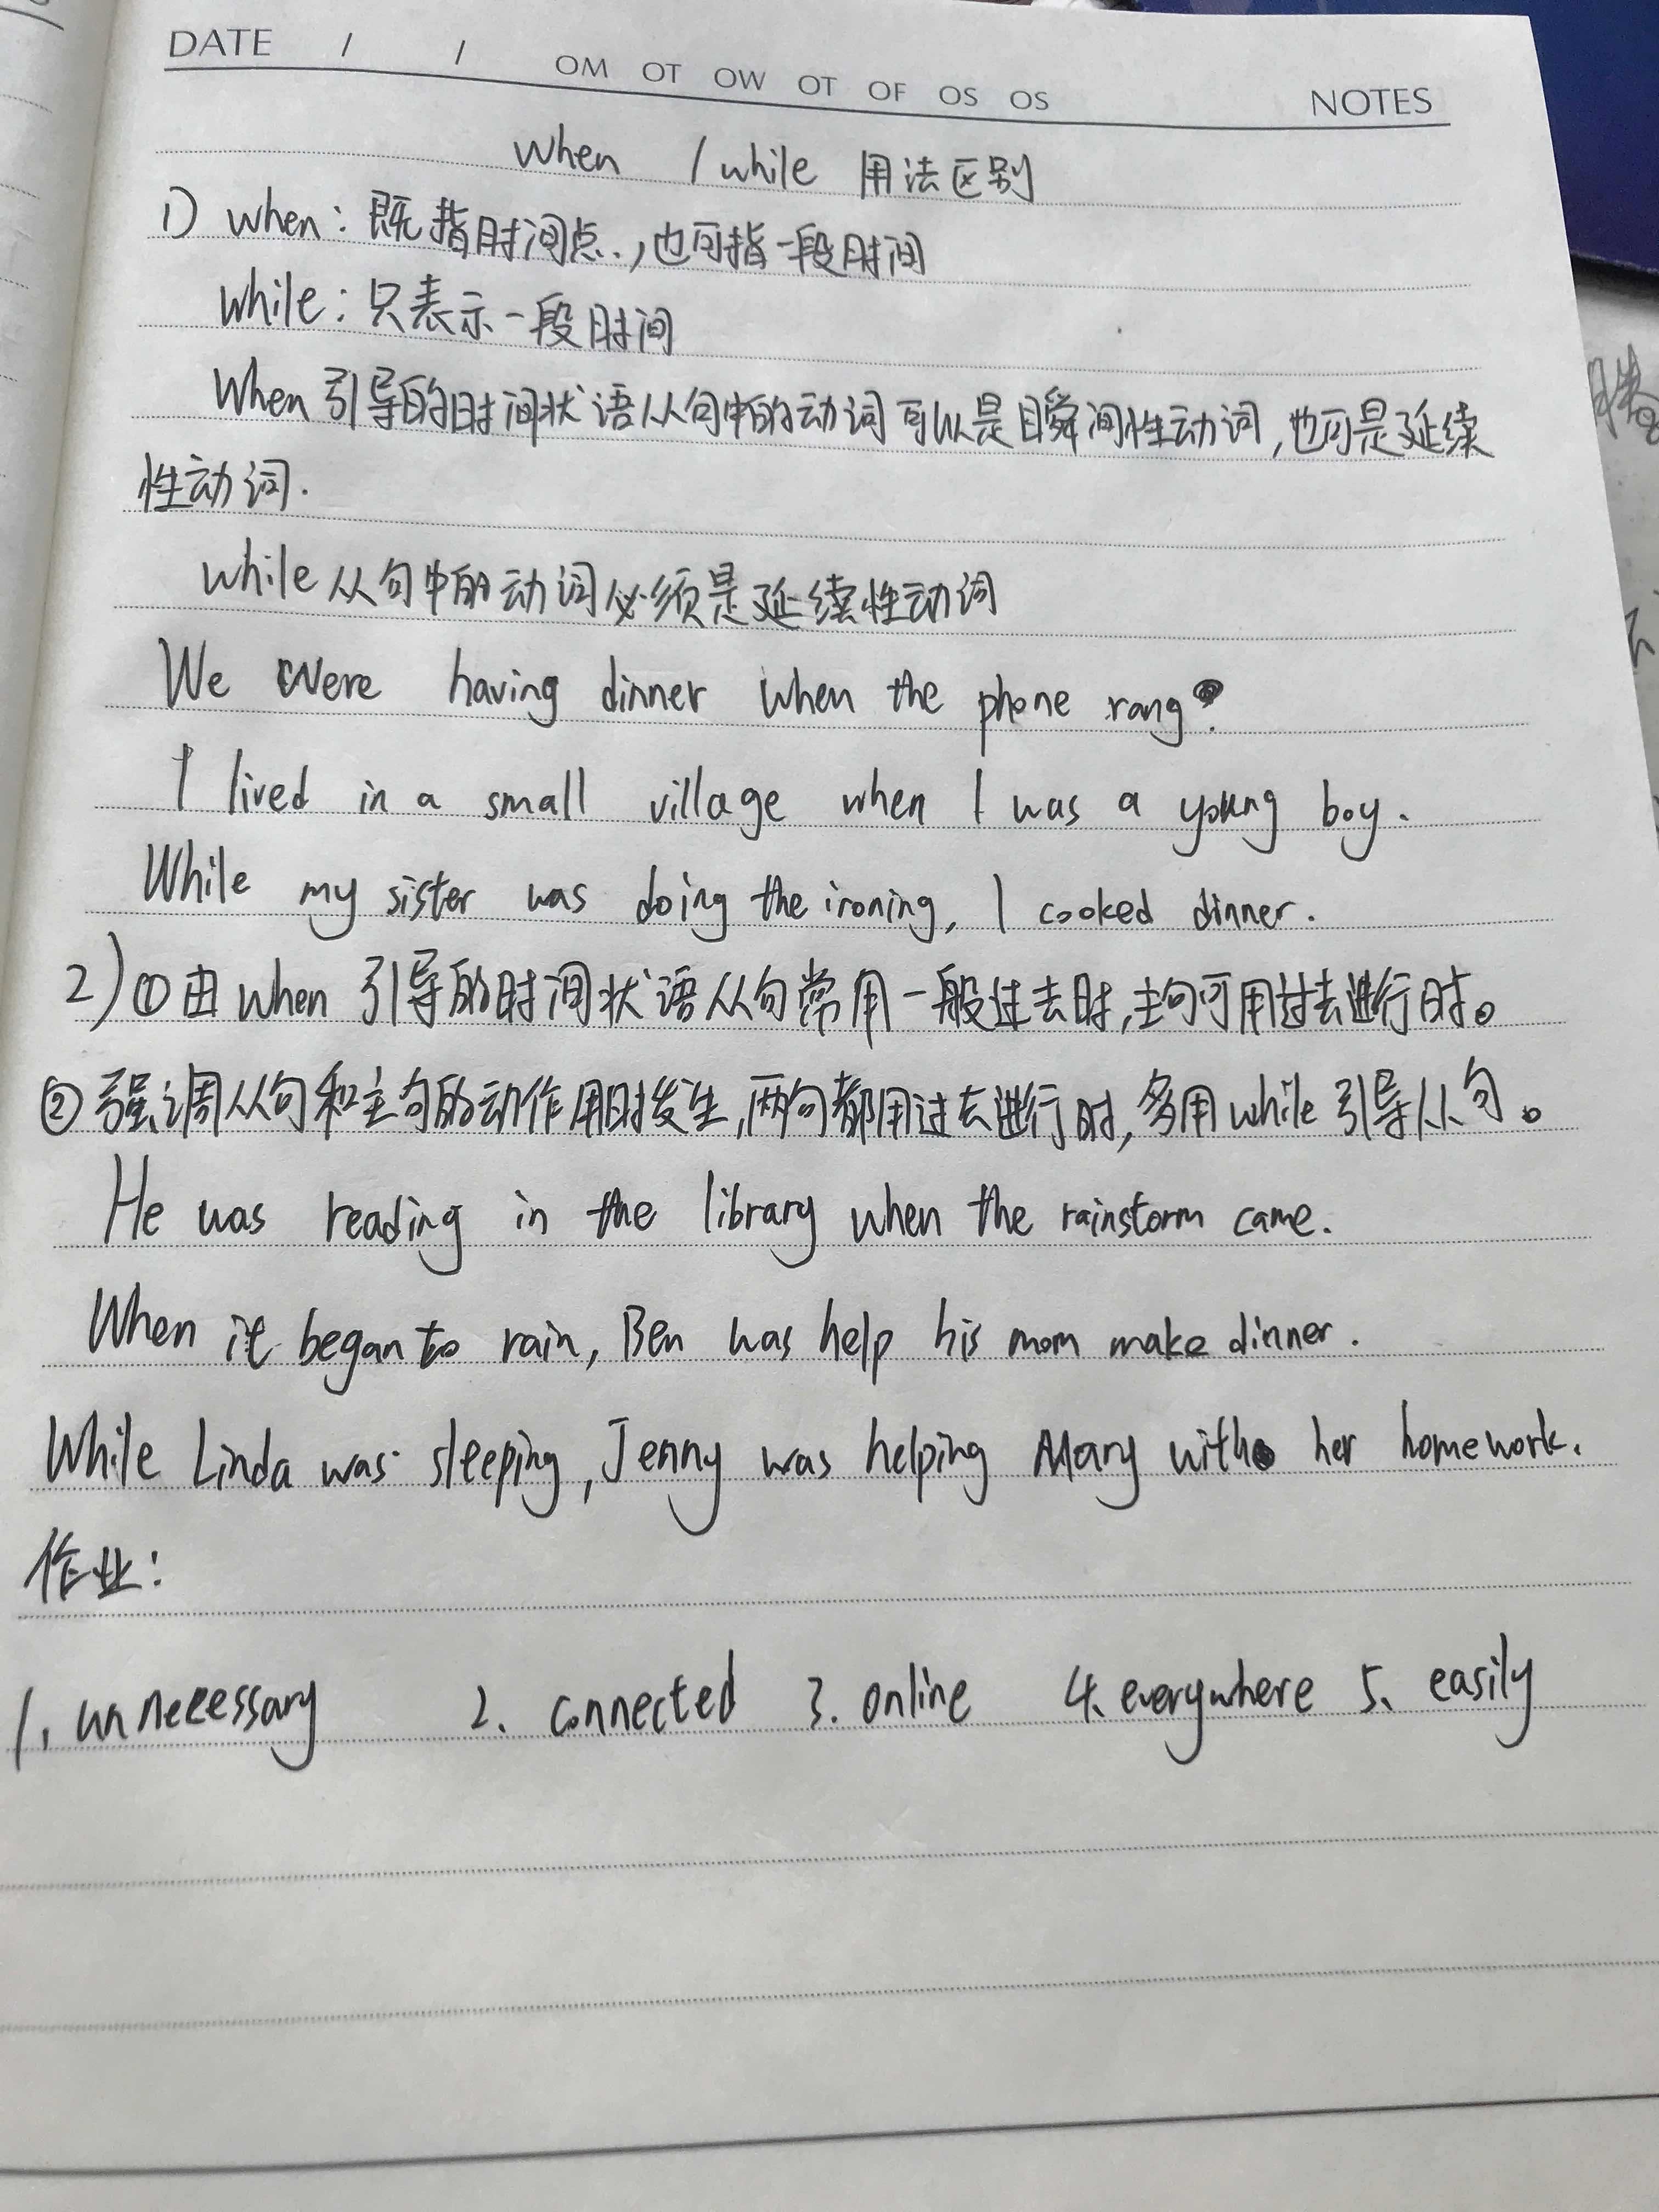 DATE / / OM OT OW OT OF OS OS NOTES
When / while 用法区别
1) when: 既指时间点.,也可指一段时间
while: 只表示一段时间
When引导的时间状语从句中的动词可以是瞬间性动词,也可是延续
性动词.
while从句中的动词必须是延续性动词
We were having dinner when the phone rang.
I lived in a small village when I was a young boy.
While my sister was doing the ironing, I cooked dinner.
2)①由when引导的时间状语从句常用一般过去时,主句可用过去进行时。
②强调从句和主句的动作用时发生,两句都用过去进行时,多用while引导从句。
He was reading in the library when the rainstorm came.
When it began to rain, Ben was help his mom make dinner.
While Linda was sleeping, Jenny was helping Mary with her homework.
作业:
1. unnecessary 2. connected 3. online 4. everywhere 5. easily